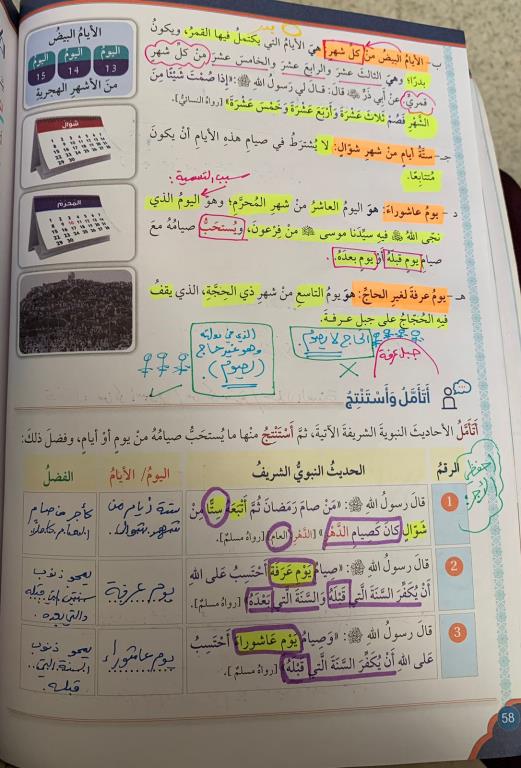 ب- الأيامُ البيضُ منْ كلِّ شهرٍ: هيَ الأيامُ التي يكتملُ فيها القمرُ، ويكونُ
بدرًا؛ وهيَ الثالثَ عشرَ والرابعَ عشرَ والخامسَ عشرَ منْ كلِّ شهرٍ
قمريٍّ؛ عنْ أبي ذرٍّ ﷺ قالَ: قالَ لي رسولُ اللهِ ﷺ: «إذا صُمْتَ شَيْئًا مِنَ
الشَّهْرِ فَصُمْ ثَلَاثَ عَشْرَةَ وَأَرْبَعَ عَشْرَةَ وَخَمْسَ عَشْرَةَ» [رواهُ النسائيُّ].
جـ- ستَّةُ أيامٍ منْ شهرِ شوّالٍ: لا يُشترَطُ في صيامِ هذهِ الأيامِ أنْ يكونَ
مُتتابِعًا.
سبب التسمية:
د - يومُ عاشوراءَ: هوَ اليومُ العاشرُ منْ شهرِ المُحرَّمِ؛ وهوَ اليومُ الذي
نجّى اللهُ ﷻ فيهِ سيِّدَنا موسى منْ فِرعونَ، ويُستحَبُّ صيامُهُ معَ
صيامِ يومٍ قبلَهُ أوْ يومٍ بعدَهُ.
هـ- يومُ عرفةَ لغيرِ الحاجِّ: هوَ يومُ التاسعِ منْ شهرِ ذي الحِجَّةِ، الذي يقفُ
فيهِ الحُجّاجُ على جبلِ عرفةَ.
الأيامُ البيضُ
اليوم 13
اليوم 14
اليوم 15
منَ الأشهرِ الهجريةِ
شوال
المحرم
الحاج لا يصوم.
جبل عرفة
وهو غير حاج
(يصوم).
أَتَأَمَّلُ وَأَسْتَنْتِجُ
أَتَأَمَّلُ الأحاديثَ النبويةَ الشريفةَ الآتيةَ، ثمَّ أَسْتَنْتِجُ منْها ما يُستحَبُّ صيامُهُ منْ يومٍ أوْ أيامٍ، وفضلَ ذلكَ:
الرقمُ
الحديثُ النبويُّ الشريفُ
اليومُ/ الأيامُ
الفضلُ
1
قالَ رسولُ اللهِ ﷺ: «مَنْ صامَ رَمَضانَ ثُمَّ أَتْبَعَهُ سِتًّا مِنْ
شَوّالٍ كانَ كَصِيامِ الدَّهْرِ» [الدَّهْرِ: العام] [رواهُ مسلمٌ].
ستة أيام من
شهر شوال.
كأجر من صام
العام كاملًا
2
قالَ رسولُ اللهِ ﷺ: «صِيامُ يَوْمِ عَرَفَةَ أَحْتَسِبُ عَلى اللهِ
أَنْ يُكَفِّرَ السَّنَةَ الَّتي قَبْلَهُ وَالسَّنَةَ الَّتي بَعْدَهُ» [رواهُ مسلمٌ].
يوم عرفة
يمحو ذنوب
سنتين التي قبله
والتي بعده.
3
قالَ رسولُ اللهِ ﷺ: «وَصِيامُ يَوْمِ عاشوراءَ أَحْتَسِبُ
عَلى اللهِ أَنْ يُكَفِّرَ السَّنَةَ الَّتي قَبْلَهُ» [رواهُ مسلمٌ].
يوم عاشوراء
يمحو ذنوب
السنة التي
قبله.
58